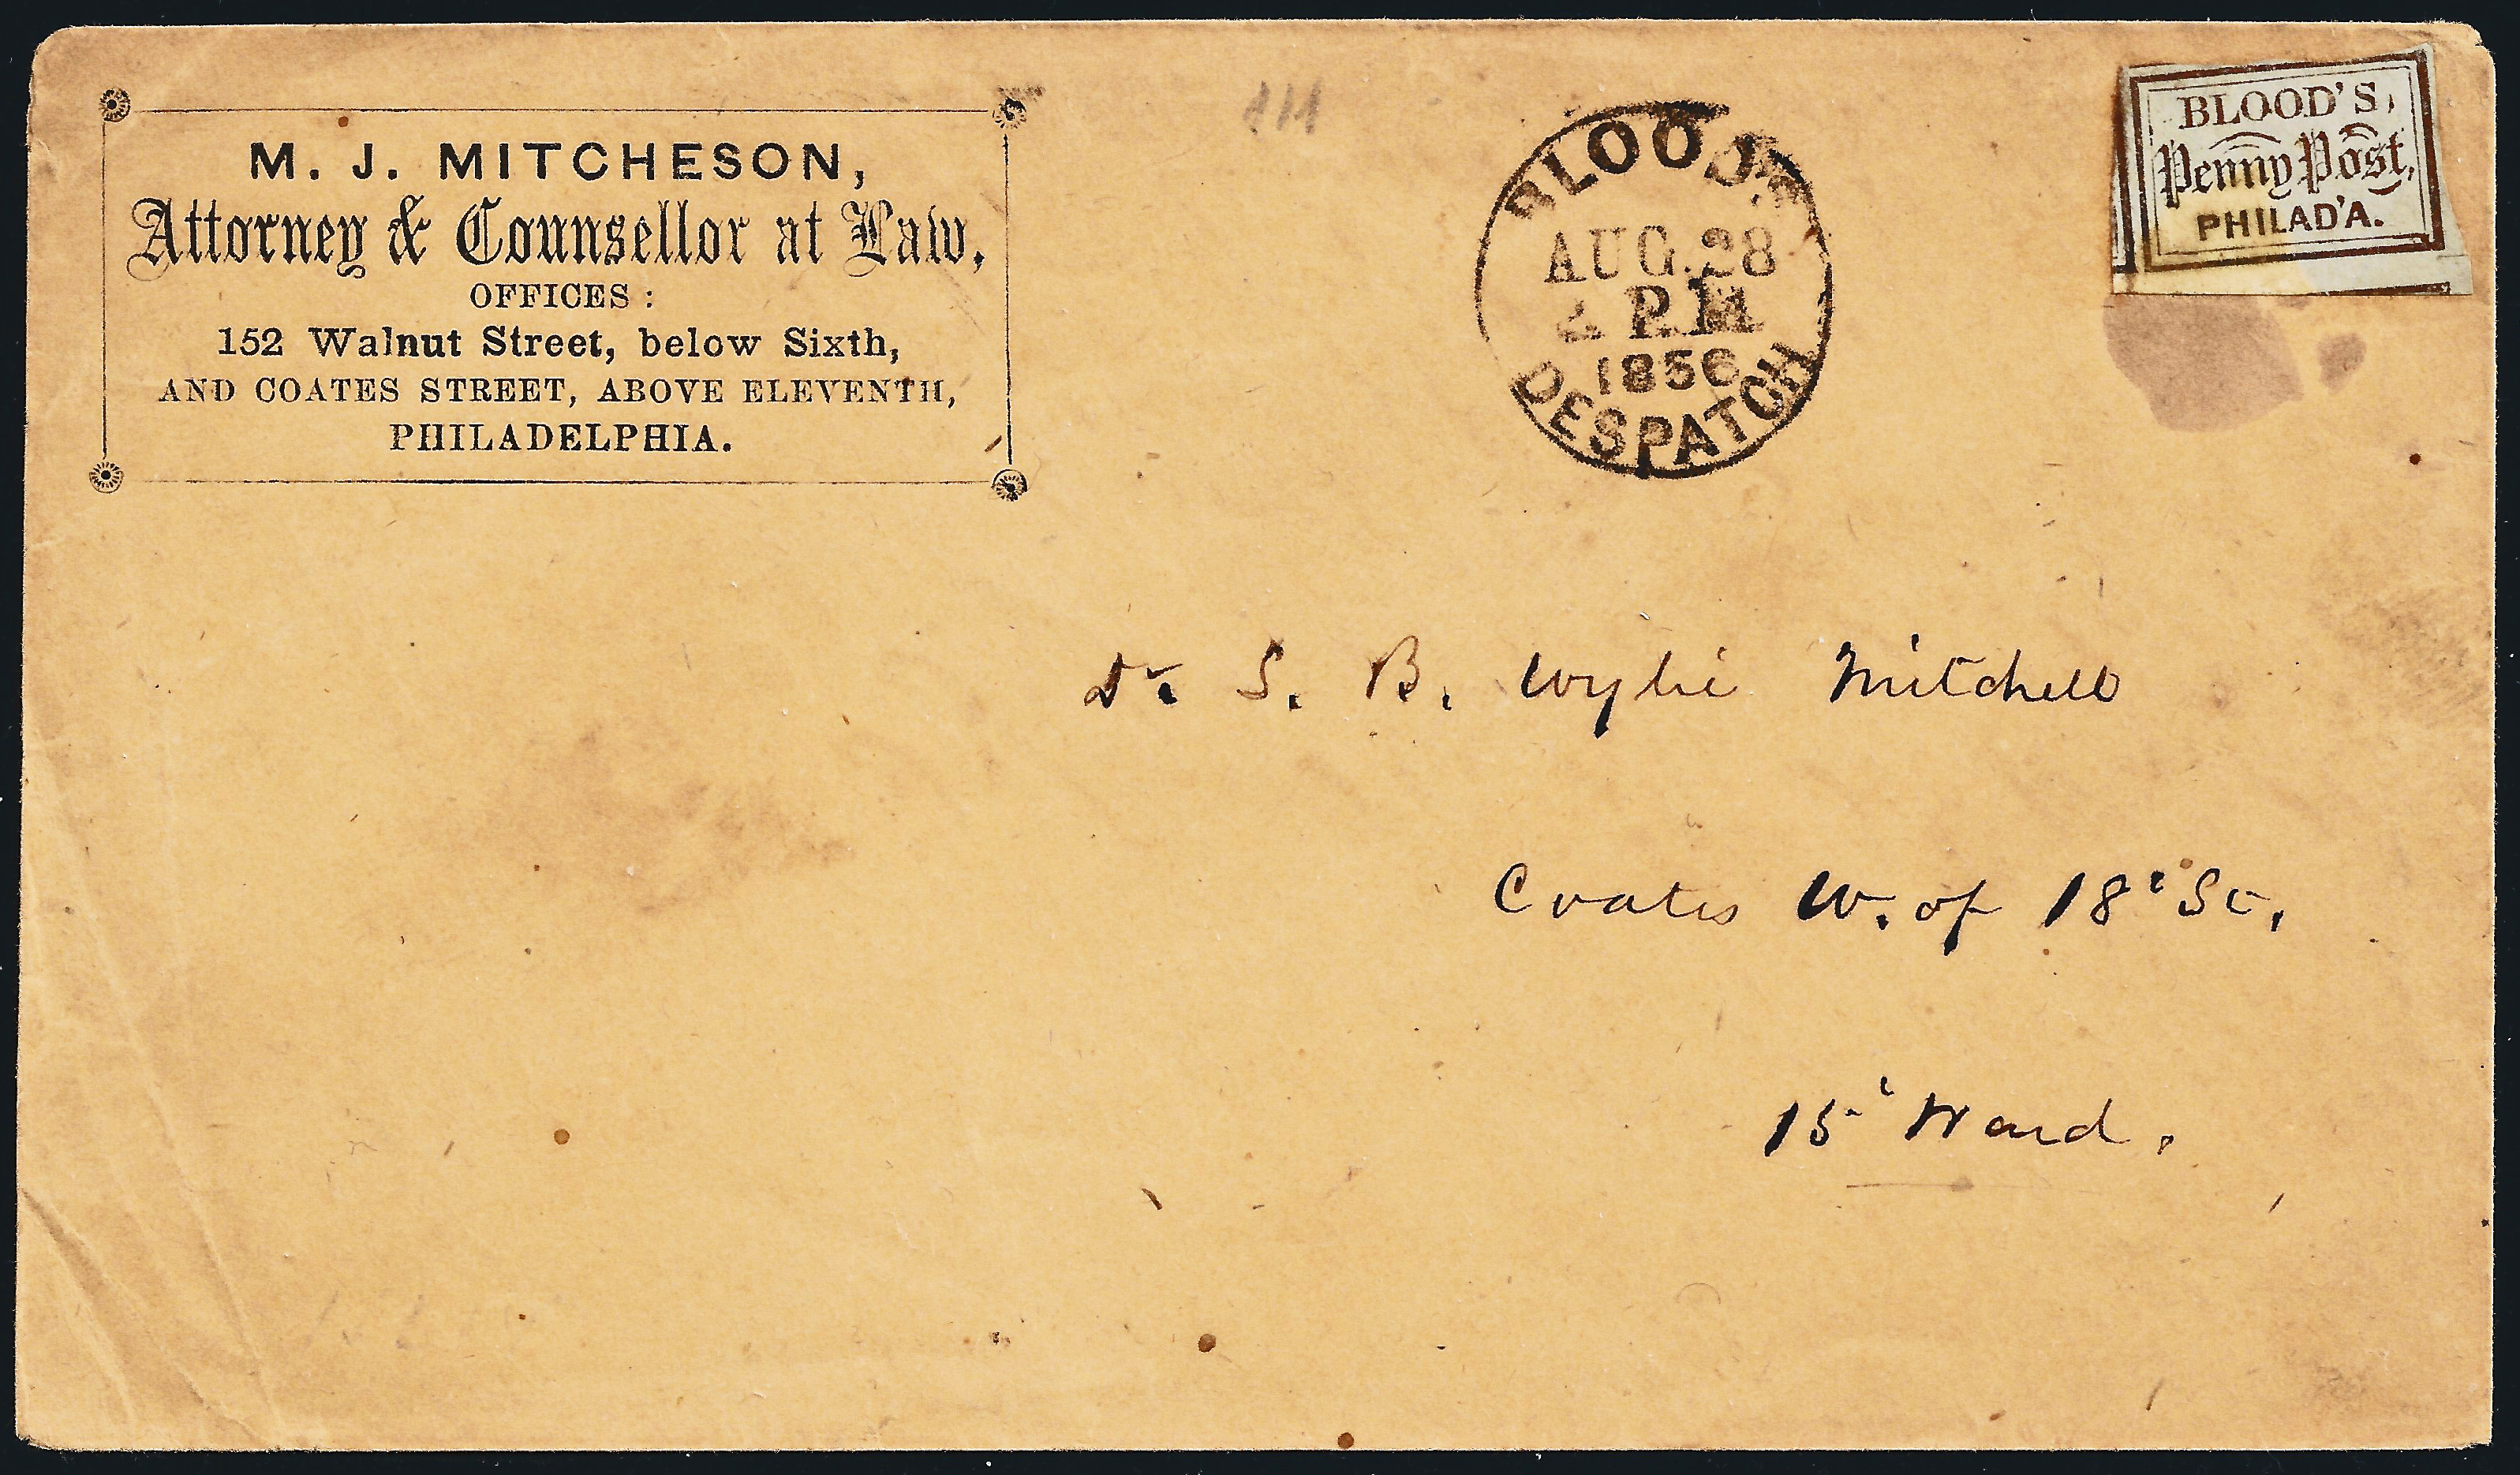 M. J. MITCHESON,
Attorney & Counsellor at Law,
OFFICES :
152 Walnut Street, below Sixth,
AND COATES STREET, ABOVE ELEVENTH,
PHILADELPHIA.
BLOOD'S
AUG. 28
P.M
1856
DESPATCH
BLOOD'S,
Penny Post,
PHILAD'A.
Dr. S. B. Wylie Mitchell
Coates W. of 18t St.
15t Ward.